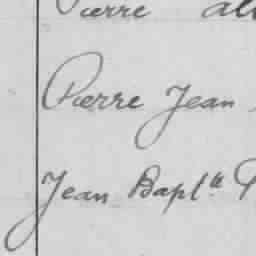 Pierre
Pierre Jean
Jean Bapt.te